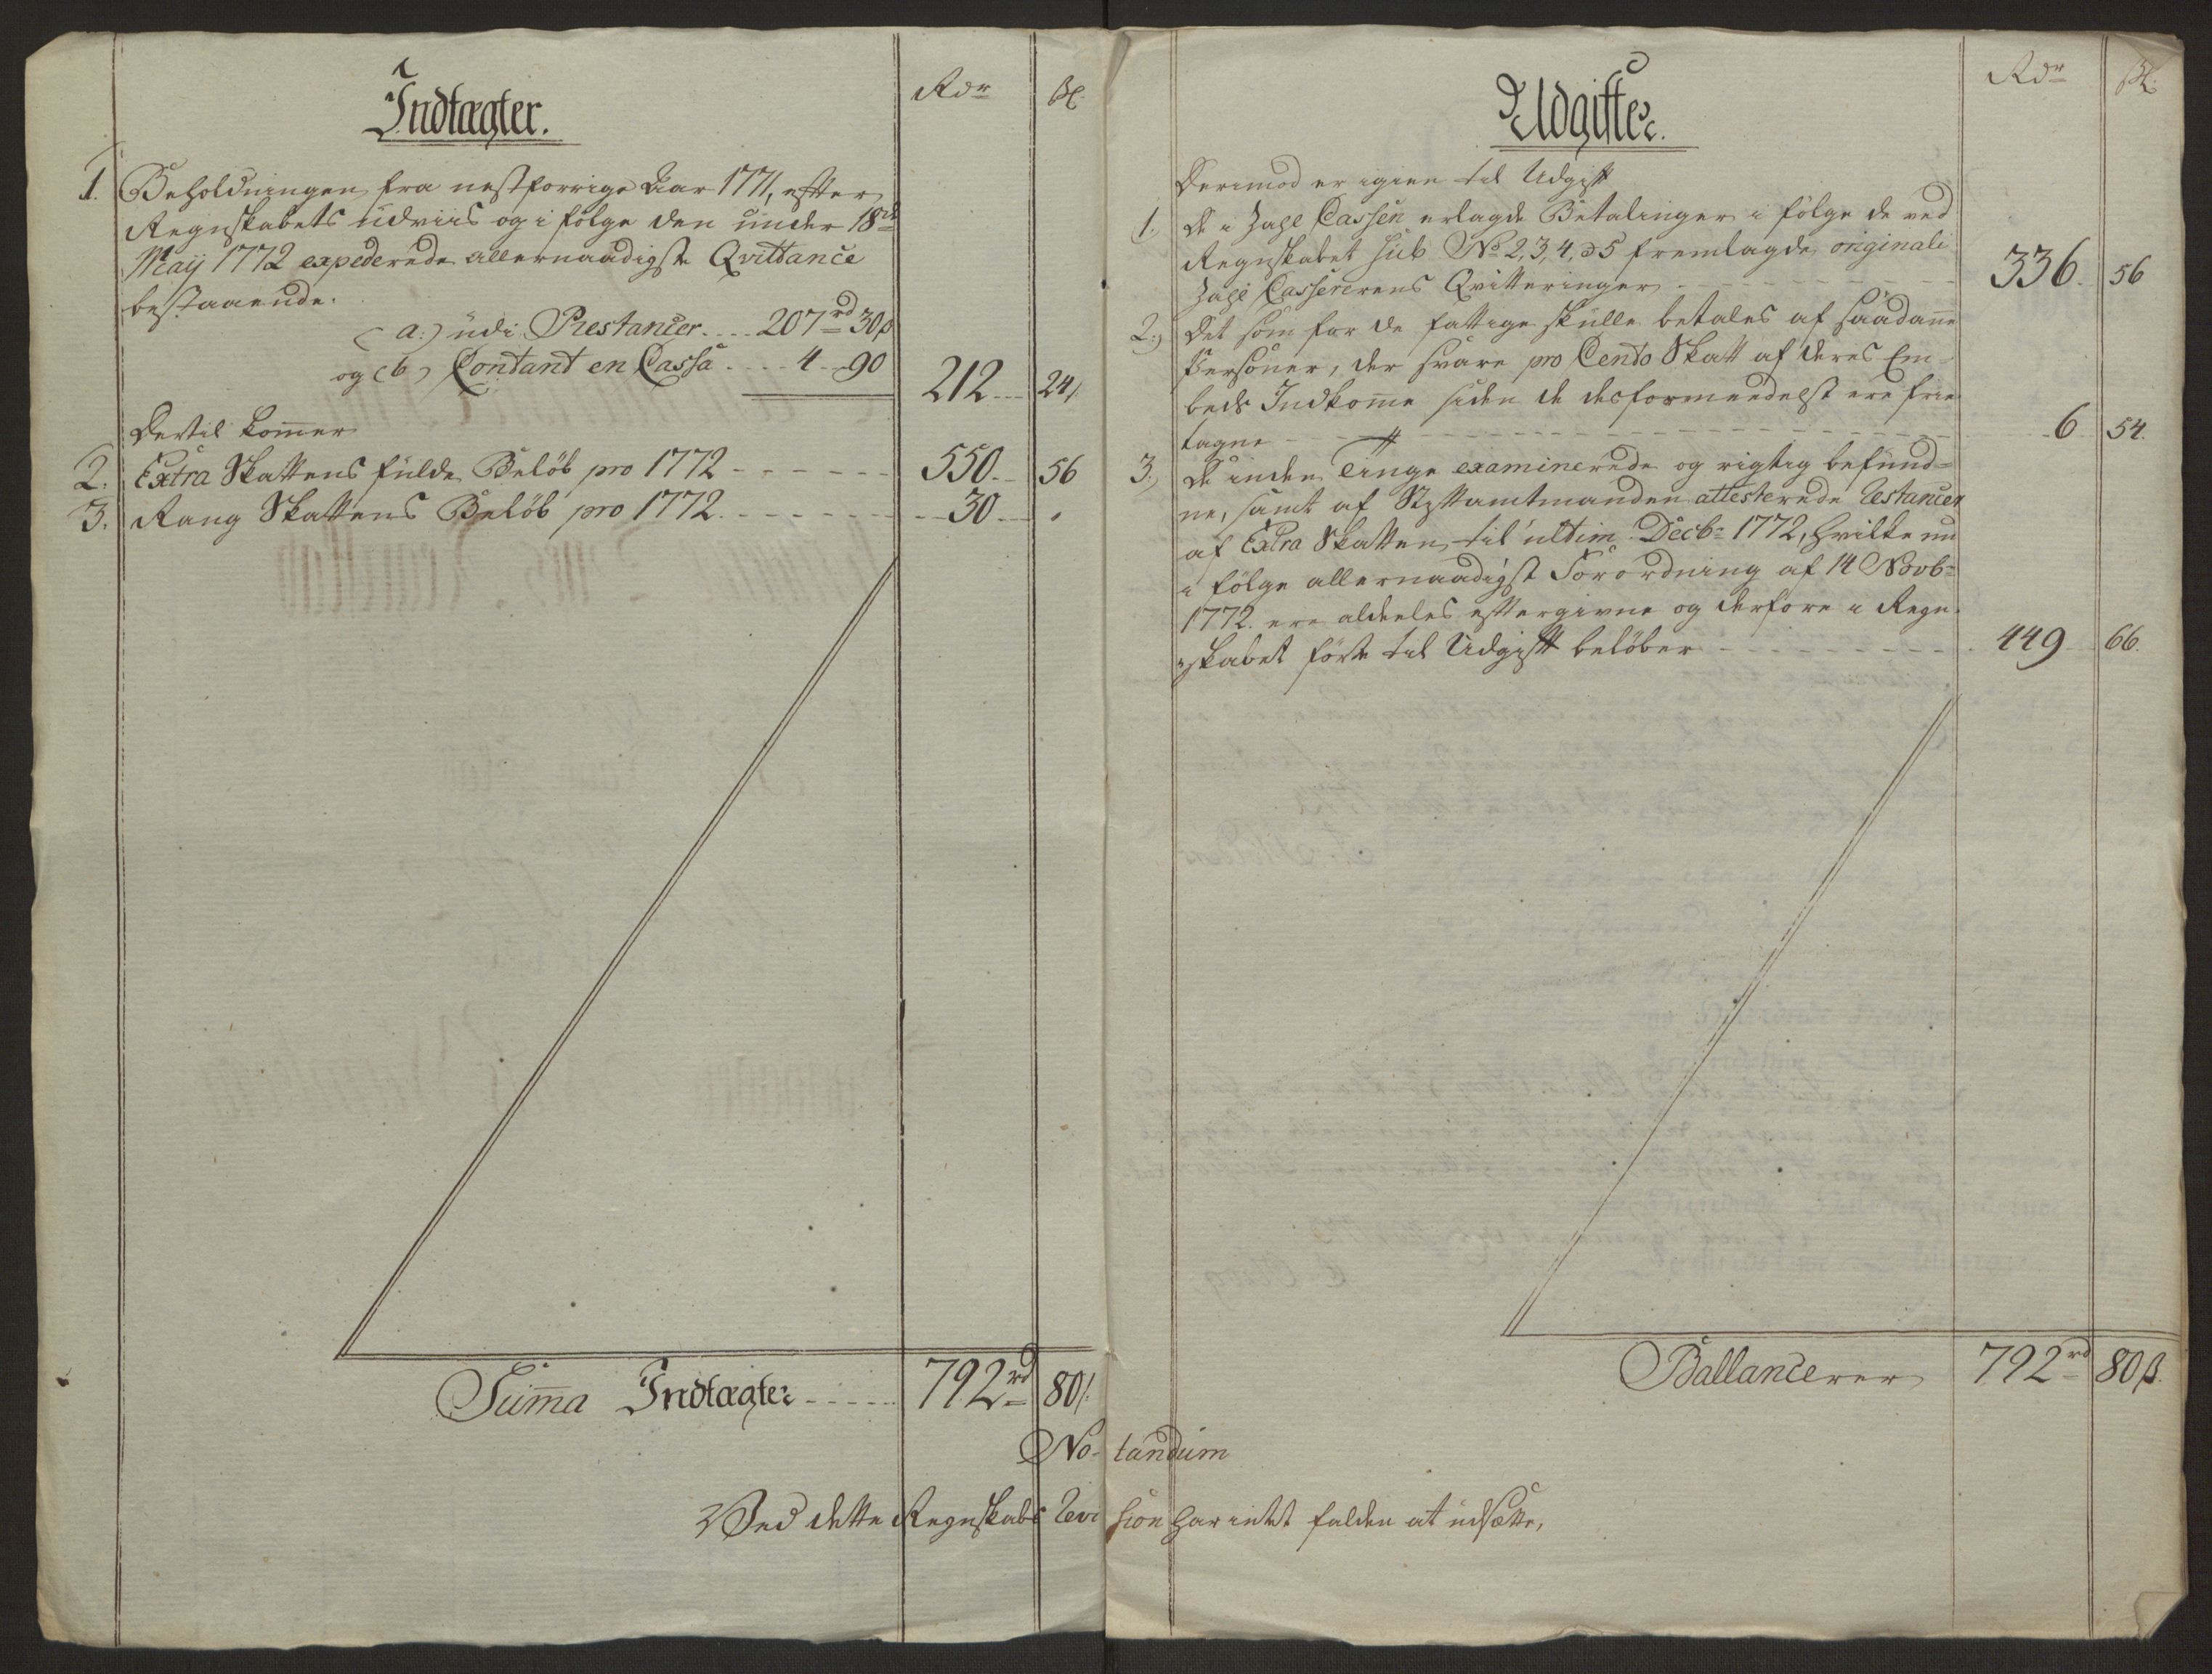 Indtægter.
Rdr ßl.
1. Beholdningen fra nestforrige Aar 1771, efter
Regnskabets udviis og i følge den under 18de
Maÿ 1772 expederede allernaadigste Qvittance
bestaaende.
(a:) udi Restancer .... 207rd 30ß
og (b) Contant en Cassa .... 4 - 90
212 24/
Dertil kommer
2. Extra Skattens fulde Beløb pro 1772 - - - - - - 550. 56
3. Rang Skattens Beløb pro 1772. - - - - - - - 30 .
Sum̃a Indtægter - - - - - 792rd 80/:
Udgifter.
Rdr ßl.
Derimod er igien til Udgift
1. De i Zahl Cassen erlagde Betalinger i følge de ved
Regnskabet sub No 2, 3, 4, & 5 fremlagde originale
Zahl Cassererens Qvitteringer - - - - - - - 336. 56
2.) Det som for de fattige skulle betales af saadanne
Personer, der svare pro Cento Skatt af deres Em-
beds Indkom̃e siden de desformedelst ere frie
tagne - - - - - - - - - - - - - - - 6 54.
3.) De inden Tinge examinerede og rigtig befund-
ne, samt af Stiftamtmanden attesterede Restancer
af Extra Skatten til ultim: Decbr 1772, hvilke nu
i følge allernaadigst Forordning af 14 Novbr
1772. ere aldeeles eftergivne og derfore i Regn-
skabet førte til Udgift beløber - - - - - - - - - - 449 66.
Ballancerer 792rd 80ß.
No- tandum
Ved dette Regnskabs Revi sion har intet falden at udsætte,